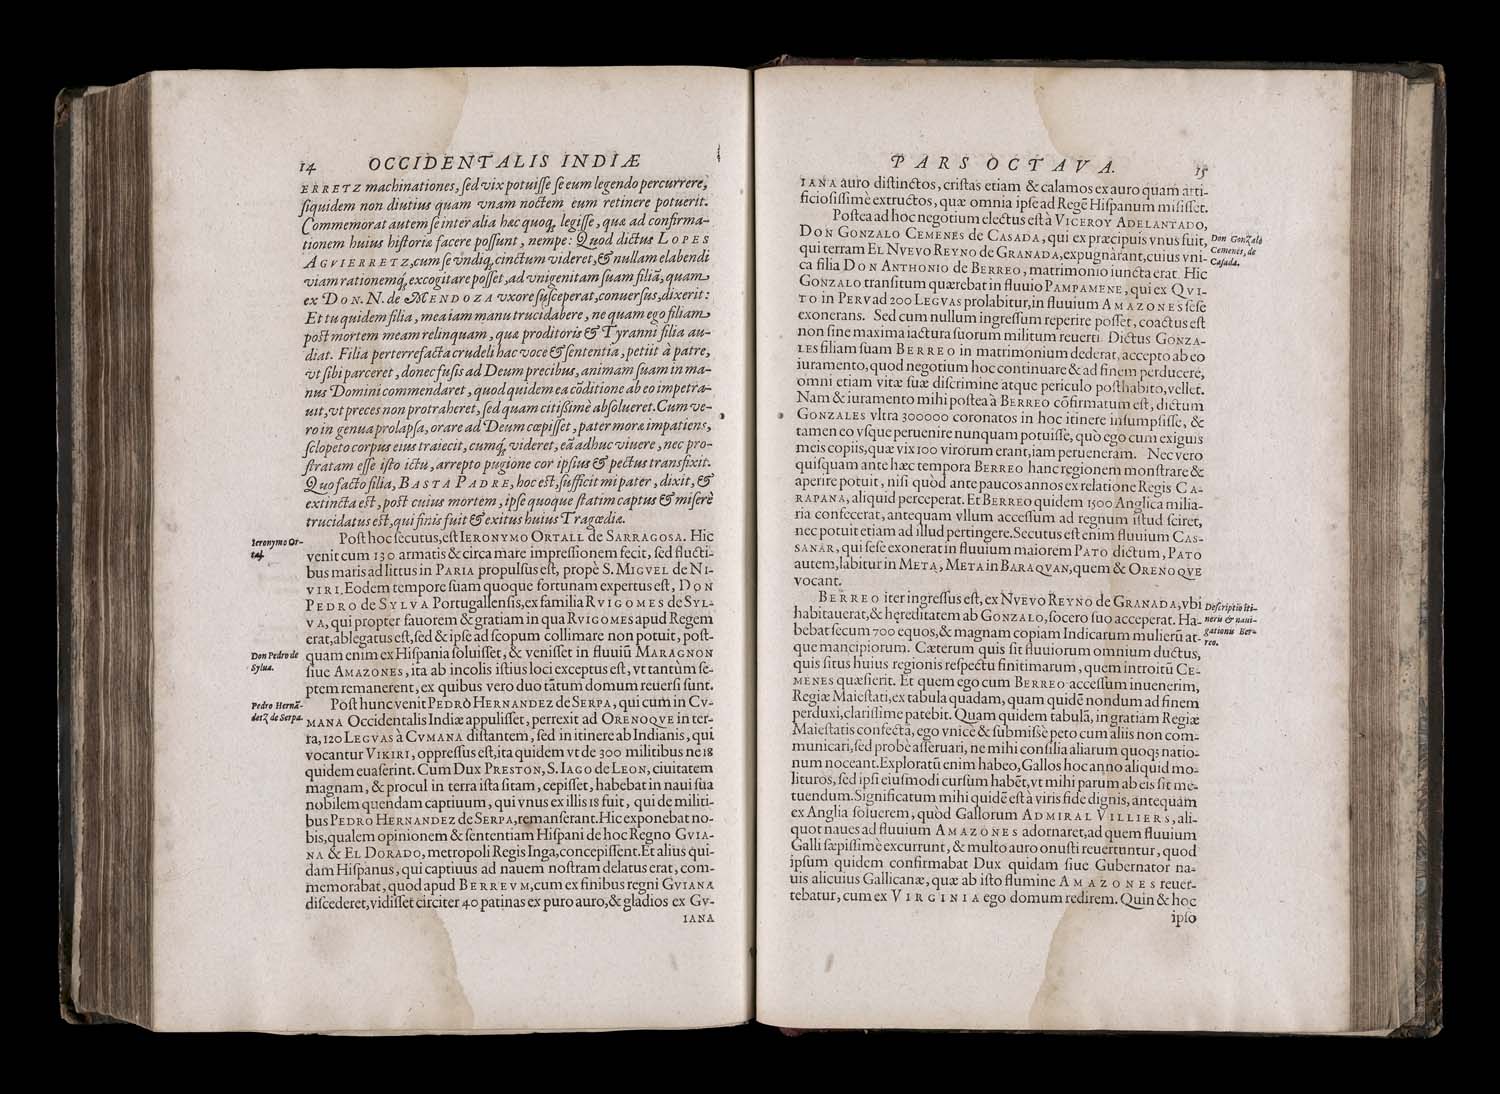 14 OCCIDENTALIS INDIÆ
ERRETZ machinationes, ſed vix potuiſſe ſe eum legendo percurrere,
ſiquidem non diutius quam vnam noctem eum retinere potuerit.
Commemorat autem ſe inter alia hæc quoq́, legiſſe, quæ ad confirma-
tionem huius hiſtoriæ facere poſſunt, nempe: Quod dictus LOPES
AGVIERRETZ, cum ſe vndiq́, cinctum videret, & nullam elabendi
viam rationemq́, excogitare poſſet, ad vnigenitam ſuam filiã, quam
ex DON. N. de MENDOZA vxore ſuſceperat, conuerſus, dixerit:
Et tu quidem filia, mea iam manu trucidabere, ne quam ego filiam
poſt mortem meam relinquam, quæ proditoris & Tyranni filia au-
diat. Filia perterrefacta crudeli hac voce & ſententia, petiit à patre,
vt ſibi parceret, donec fuſis ad Deum precibus, animam ſuam in ma-
nus Domini commendaret, quod quidem ea cõditione ab eo impetra-
uit, vt preces non protraheret, ſed quam citiſſimè abſolueret. Cum ve-
ro in genua prolapſa, orare ad Deum cœpiſſet, pater moræ impatiens,
ſclopeto corpus eius traiecit, cumq́, videret, eã adhuc viuere, nec pro-
ſtratam eſſe iſto ictu, arrepto pugione cor ipſius & pectus transfixit.
Quo facto filia, BASTA PADRE, hoc eſt, ſufficit mi pater, dixit, &
extincta eſt, poſt cuius mortem, ipſe quoque ſtatim captus & miſerè
trucidatus eſt, qui finis fuit & exitus huius Tragœdiæ.
Ieronymo Or-
tal.
Poſt hoc ſecutus, eſt IERONYMO ORTALL de SARRAGOSA. Hic
venit cum 130 armatis & circa mare impreſſionem fecit, ſed flucti-
bus maris ad littus in PARIA propulſus eſt, propè S. MIGVEL de NI-
VIRI. Eodem tempore ſuam quoque fortunam expertus eſt, DON
PEDRO de SYLVA Portugallenſis, ex familia RVIGOMES de SYL-
VA, qui propter fauorem & gratiam in qua RVIGOMES apud Regem
erat, ablegatus eſt, ſed & ipſe ad ſcopum collimare non potuit, poſt-
Don Pedro de
Sylua.
quam enim ex Hiſpania ſoluiſſet, & veniſſet in fluuiũ MARAGNON
ſiue AMAZONES, ita ab incolis iſtius loci exceptus eſt, vt tantùm ſe-
ptem remanerent, ex quibus vero duo tãtum domum reuerſi ſunt.
Pedro Hernã-
detz de Serpa.
Poſt hunc venit PEDRO HERNANDEZ de SERPA, qui cum in CV-
MANA Occidentalis Indiæ appuliſſet, perrexit ad ORENOQVE in ter-
ra, 120 LEGVAS à CVMANA diſtantem, ſed in itinere ab Indianis, qui
vocantur VIKIRI, oppreſſus eſt, ita quidem vt de 300 militibus ne 18
quidem euaſerint. Cum Dux PRESTON, S. IAGO de LEON, ciuitatem
magnam, & procul in terra iſta ſitam, cepiſſet, habebat in naui ſua
nobilem quendam captiuum, qui vnus ex illis 18 fuit, qui de militi-
bus PEDRO HERNANDEZ de SERPA, remanſerant. Hic exponebat no-
bis, qualem opinionem & ſententiam Hiſpani de hoc Regno GVIA-
NA & EL DORADO, metropoli Regis Inga, concepiſſent. Et alius qui-
dam Hiſpanus, qui captiuus ad nauem noſtram delatus erat, com-
memorabat, quod apud BERREVM, cum ex finibus regni GVIANA
diſcederet, vidiſſet circiter 40 patinas ex puro auro, & gladios ex GV-
IANA
PARS OCTAVA. 15
IANA auro diſtinctos, criſtas etiam & calamos ex auro quam arti-
ficioſiſſimè extructos, quæ omnia ipſe ad Regẽ Hiſpanum miſiſſet.
Poſtea ad hoc negotium electus eſt à VICEROY ADELANTADO,
DON GONZALO CEMENES de CASADA, qui ex præcipuis vnus fuit,
Don Gonzalo
Cemenes, de
Caſada.
qui terram EL NVEVO REYNO de GRANADA, expugnârant, cuius vni-
ca filia DON ANTHONIO de BERREO, matrimonio iuncta erat. Hic
GONZALO tranſitum quærebat in fluuio PAMPAMENE, qui ex QVI-
TO in PERV ad 200 LEGVAS prolabitur, in fluuium AMAZONES ſeſe
exonerans. Sed cum nullum ingreſſum reperire poſſet, coactus eſt
non ſine maxima iactura ſuorum militum reuerti. Dictus GONZA-
LES filiam ſuam BERREO in matrimonium dederat, accepto ab eo
iuramento, quod negotium hoc continuare & ad finem perducere,
omni etiam vitæ ſuæ diſcrimine atque periculo poſthabito, vellet.
Nam & iuramento mihi poſtea à BERREO cõfirmatum eſt, dictum
GONZALES vltra 300000 coronatos in hoc itinere inſumpſiſſe, &
tamen eo vſque peruenire nunquam potuiſſe, quò ego cum exiguis
meis copiis, quæ vix 100 virorum erant, iam perueneram. Nec vero
quiſquam ante hæc tempora BERREO hanc regionem monſtrare &
aperire potuit, niſi quòd ante paucos annos ex relatione Regis CA-
RAPANA, aliquid perceperat. Et BERREO quidem 1500 Anglica milia-
ria confecerat, antequam vllum acceſſum ad regnum iſtud ſciret,
nec potuit etiam ad illud pertingere. Secutus eſt enim fluuium CAS-
SANAR, qui ſeſe exonerat in fluuium maiorem PATO dictum, PATO
autem, labitur in META, META in BARAQVAN, quem & ORENOQVE
vocant.
BERREO iter ingreſſus eſt, ex NVEVO REYNO de GRANADA, vbi
Deſcriptio iti-
neris & naui-
gationis Ber-
reo.
habitauerat, & hęreditatem ab GONZALO, ſocero ſuo acceperat. Ha-
bebat ſecum 700 equos, & magnam copiam Indicarum mulierũ at-
que mancipiorum. Cæterum quis ſit fluuiorum omnium ductus,
quis ſitus huius regionis reſpectu finitimarum, quem introitũ CE-
MENES quæſierit. Et quem ego cum BERREO acceſſum inuenerim,
Regiæ Maieſtati, ex tabula quadam, quam quidẽ nondum ad finem
perduxi, clariſſime patebit. Quam quidem tabulã, in gratiam Regiæ
Maieſtatis confectã, ego vnicè & ſubmiſſè peto cum aliis non com-
municari, ſed probè aſſeruari, ne mihi conſilia aliarum quoq; natio-
num noceant. Exploratũ enim habeo, Gallos hoc anno aliquid mo-
lituros, ſed ipſi eiuſmodi curſum habẽt, vt mihi parum ab eis ſit me-
tuendum. Significatum mihi quidẽ eſt à viris fide dignis, antequam
ex Anglia ſoluerem, quòd Gallorum ADMIRAL VILLIERS, ali-
quot naues ad fluuium AMAZONES adornaret, ad quem fluuium
Galli ſæpiſſimè excurrunt, & multo auro onuſti reuertuntur, quod
ipſum quidem confirmabat Dux quidam ſiue Gubernator na-
uis alicuius Gallicanæ, quæ ab iſto flumine AMAZONES reuer-
tebatur, cum ex VIRGINIA ego domum redirem. Quin & hoc
ipſo